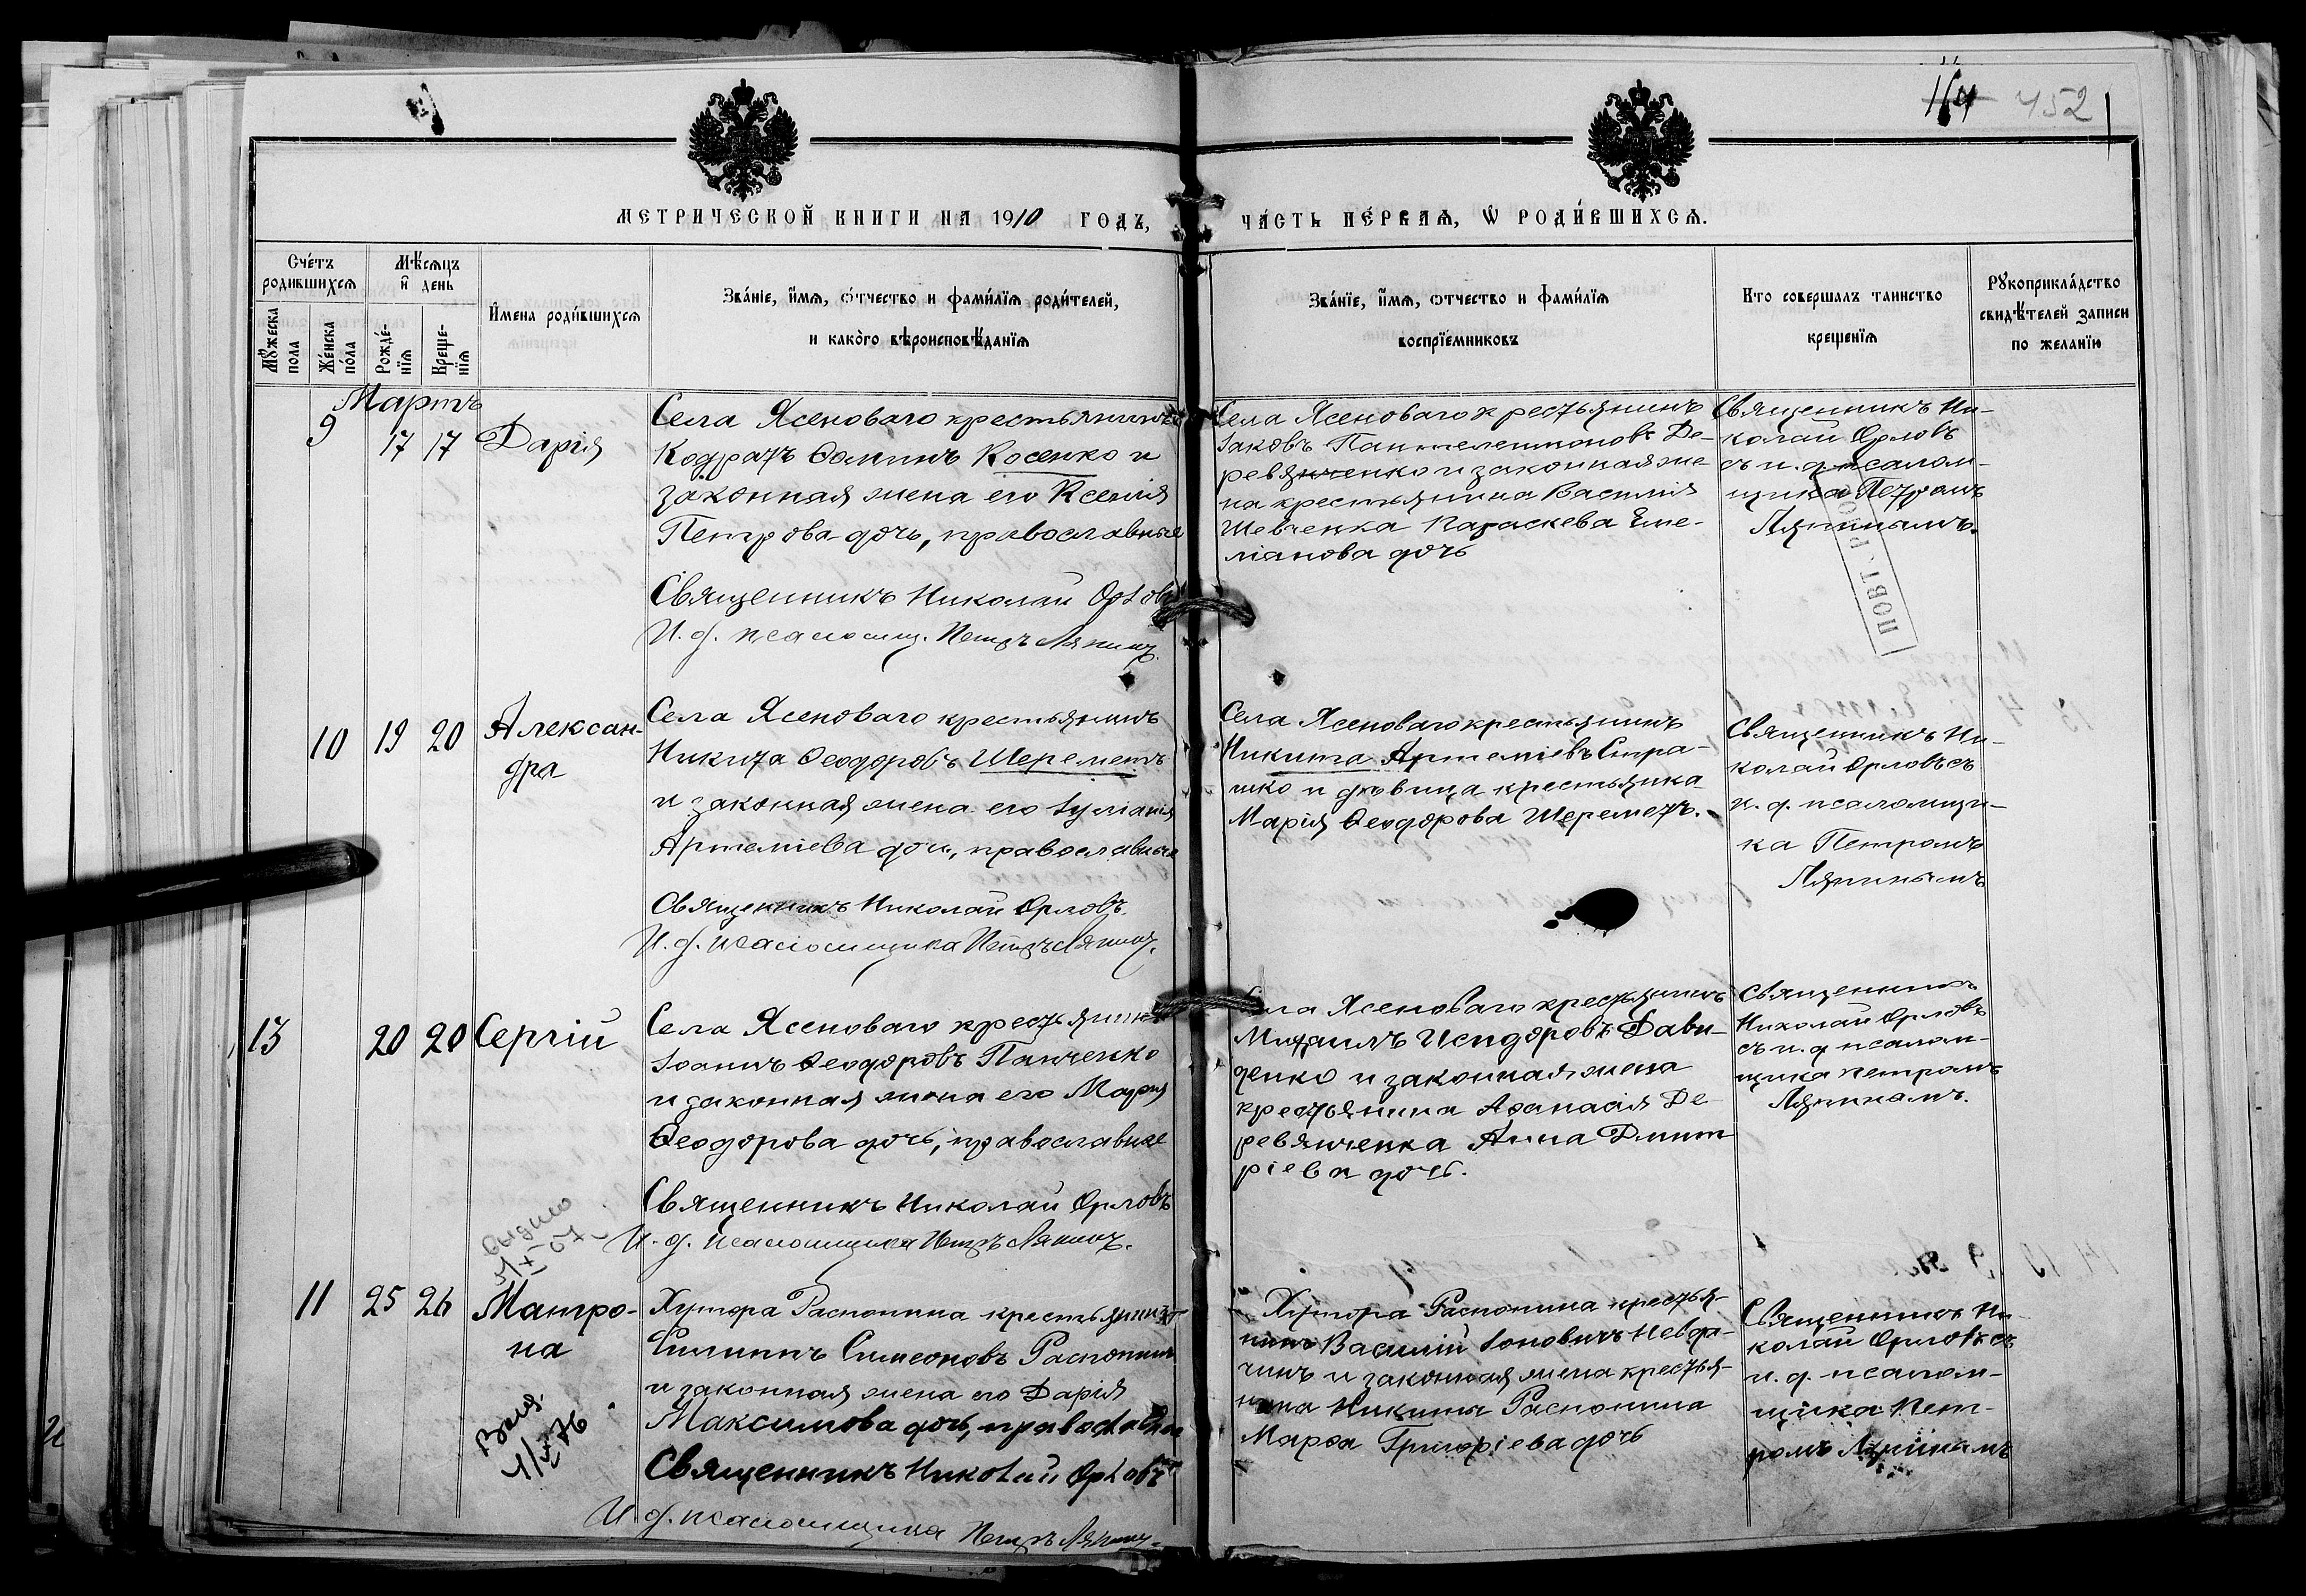 452
МЕТРИЧЕСКОЙ КНИГИ НА 1910 ГОДЪ,
ЧА́СТЬ ПЕ́РВАѦ, Ѡ҆ РОДИ́ВШИХСѦ.
Сче́тъ родившихсѧ
Мѣ́сѧцъ и҆ день
Мꙋ́жеска пола
Же́нска по́ла
Рожде́-нїѧ
Креще-нїѧ
И҆мена роди́вшихсѧ
Зва́нїе, и҆́мѧ, ѻ҆́тчество и фами́лїѧ роди́телей,
и како́го вѣроисповѣ́данїѧ
Зва́нїе, и҆́мѧ, ѻтчество и фами́лїѧ
воспрїе́мниковъ
Кто совершалъ таинство
крещенїѧ
Рꙋкоприкла́дство
свидѣ́телей записи
по желанїю
Мартъ
9
17 17
Дарія
Села Ясеноваго крестьянинъ
Кодратъ Ѳоминъ Косенко и
законная жена его Ксенія
Петрова дочь, православные
Священникъ Николай Орловъ
И. д. псаломщ. Петръ Ляпинъ.
Села Ясеноваго крестьянинъ
Іаковъ Пантелеимоновъ Де-
ревянченко и законная же
на крестьянина Василія
Шевченка Параскева Еме-
ліанова дочь
Священникъ Ни-
колай Орловъ
съ и. д. псалом-
щика Петромъ
Ляпинымъ.
ПОВТ.
10
19 20
Алексан-
дра
Села Ясеноваго крестьянинъ
Никита Ѳеодоровъ Шереметъ
и законная жена его Іуліанія
Артеміева дочь, православные
Священникъ Николай Орловъ.
И. д. псаломщика Петръ Ляпинъ.
Села Ясеноваго крестьянинъ
Никита Артеміевъ Стра-
шко и дѣвица крестьянка
Марія Ѳеодорова Шереметъ.
Священникъ Ни-
колай Орловъ съ
и. д. псаломщи-
ка Петромъ
Ляпинымъ
13
20 20
Сергій
Села Ясеноваго крестьянинъ
Іоаннъ Ѳеодоровъ Панченко
и законная жена его Марія
Ѳеодорова дочь, православные
Священникъ Николай Орловъ
И. д. псаломщика Петръ Ляпинъ.
Села Ясеноваго крестьянинъ
Михаилъ Исидоровъ Дави-
денко и законная жена
крестьянина Аѳанасія Де-
ревянченка Анна Димит
ріева дочь.
Священникъ
Николай Орловъ
съ и. д. псалом-
щика Петромъ
Ляпинымъ.
11
25 26
Матро-
на
Хутора Распопина крестьянинъ
Филиппъ Симеоновъ Распопинъ
и законная жена его Дарія
Максимова дочь, православные
Священникъ Николай Орловъ
И. д. псаломщика Петръ Ляпинъ.
Хутора Распопина крестья-
нинъ Василій Іоновичъ Невда-
чинъ и законная жена крестья-
нина Никиты Распопина
Марѳа Григоріева дочь
Священникъ Ни-
колай Орловъ съ
и. д. псалом-
щика Пет-
ромъ Ляпинымъ